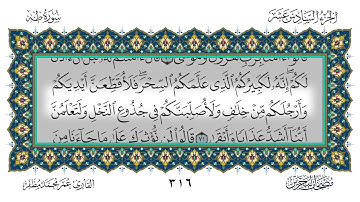 الجزء السادس عشر
سورة طه
لَكُمْ إِنَّهُ لَكَبِيرُكُمُ الَّذِي عَلَّمَكُمُ السِّحْرَ فَلَأُقَطِّعَنَّ أَيْدِيَكُمْ
وَأَرْجُلَكُم مِّنْ خِلَافٍ وَلَأُصَلِّبَنَّكُمْ فِي جُذُوعِ النَّخْلِ وَلَتَعْلَمُنَّ
أَيُّنَا أَشَدُّ عَذَابًا وَأَبْقَىٰ ﴿٧١﴾ قَالُوا لَن نُّؤْثِرَكَ عَلَىٰ مَا جَاءَنَا مِنَ
٣١٦
القارئ عمر محمد مظفر